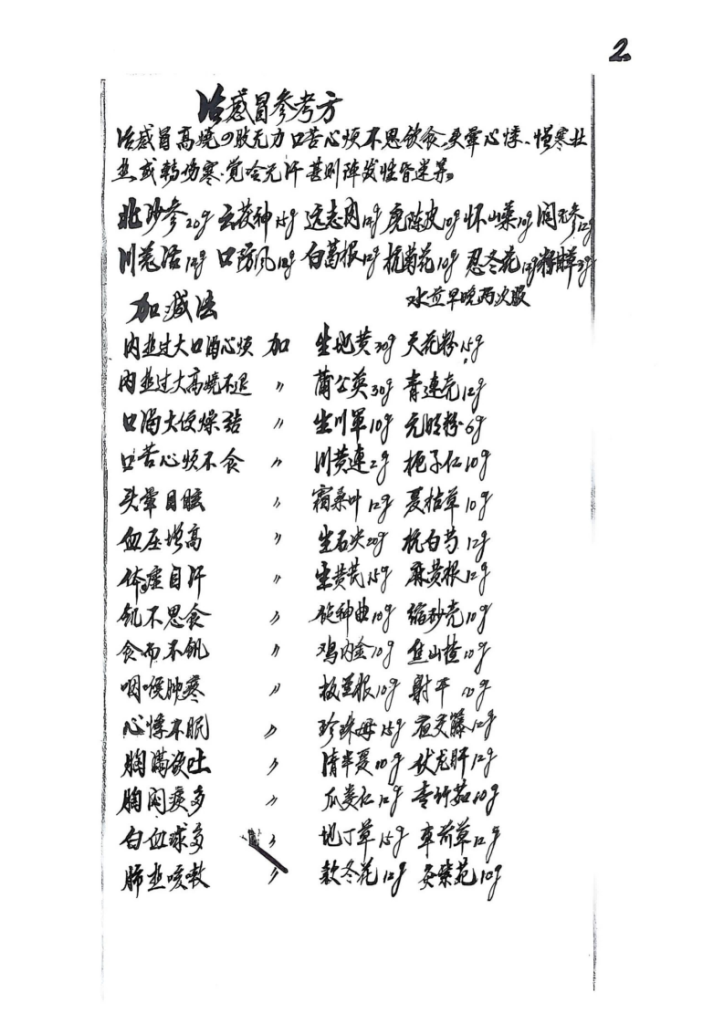 2.
治感冒参考方
治感冒高烧四肢无力口苦心烦不思饮食、头晕心悸、憎寒壮
热或转伤寒、觉冷无汗甚则阵发性昏迷并。
北沙参20g 云茯神15g 远志肉12g 广陈皮10g 怀山药10g 润元参12g
川羌活12g 口防风10g 白葛根12g 杭菊花10g 忍冬花12g 粉甘草3g
水煎早晚两次服
加减法
内热过大口渴心烦 加 生地黄30g 天花粉15g
内热过大高烧不退 〃 蒲公英30g 青连壳12g
口渴大便燥结 〃 生川军10g 元明粉6g
口苦心烦不食 〃 川黄連2g 栀子仁10g
头晕目眩 〃 霜桑叶12g 夏枯草10g
血压增高 〃 生石决20g 杭白芍12g
体虚自汗 〃 生黄芪15g 麻黄根12g
饥不思食 〃 神曲10g 缩砂壳10g
食而不饥 〃 鸡内金10g 焦山楂10g
咽喉肿疼 〃 板兰根10g 射干10g
心悸不眠 〃 珍珠母15g 夜交藤12g
胸满欲吐 〃 清半夏10g 伏龙肝12g
胸闷痰多 〃 瓜娄仁12g 青竹茹10g
白血球多 〃 地丁草15g 車前草12g
肺热咳嗽 〃 款冬花12g 炙紫菀10g